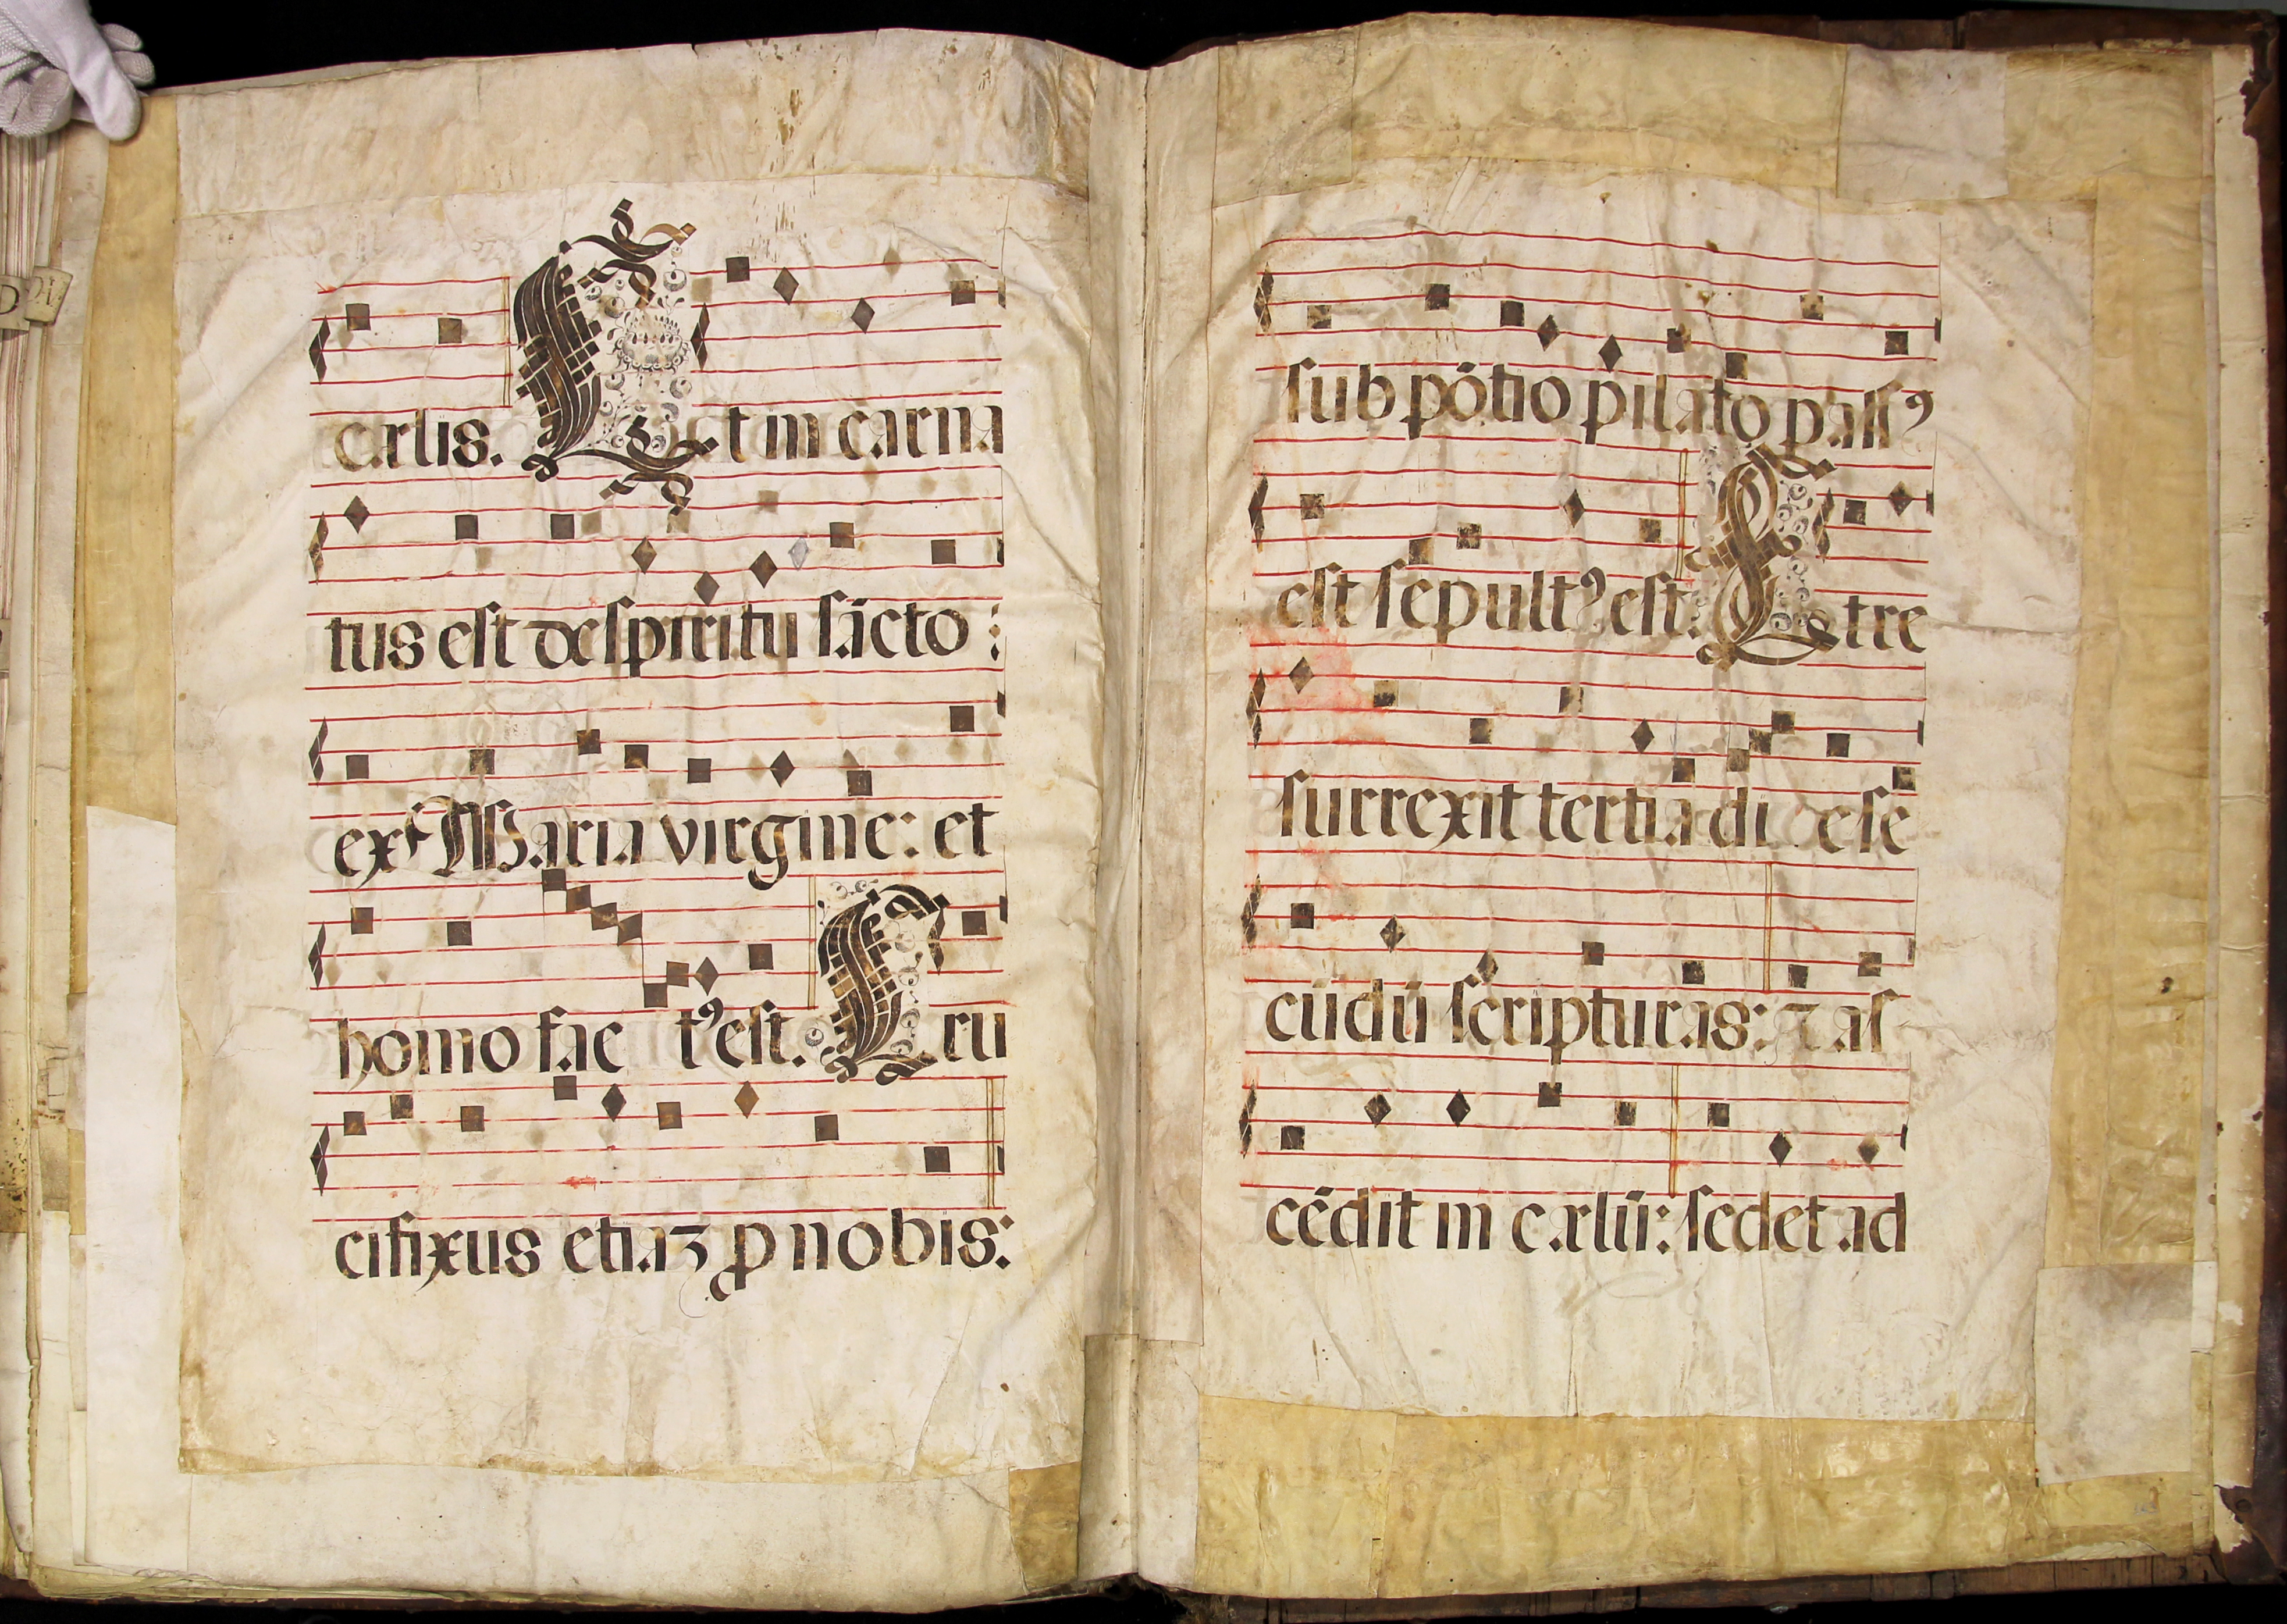 cælis. Et in carna
tus est de spiritu sācto :
ex Maria virgine: et
homo fac tꝰ est. Cru
cifixus etiaꝫ ꝓ nobis:
sub pōtio pilato passꝰ
est sepultꝰ est: Et re
surrexit tertia di e se
cūdū scripturas: ⁊ as
cēdit in cælū: sedet ad